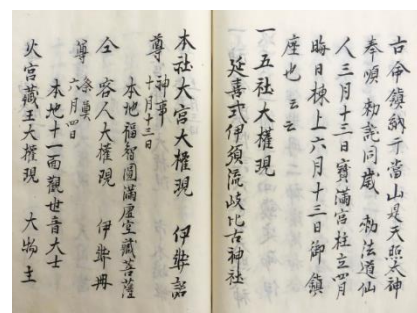 古命鎮祓于當山是天照太神
奉順勅託同歳勅法道仙
人三月十三日寶滿宮柱立四月
晦日棟上六月十三日御鎮
座也云云
一五社大權現
延喜式伊須流岐比古神社
本社大宮大權現 伊弉諾
尊 神事 十月十三日
本地福智圓滿虚空藏菩薩
仝 客人大權現 伊弉冊
尊 祭奠 六月四日
本地十一面觀世音大士
火宮藏王大權現 大物主